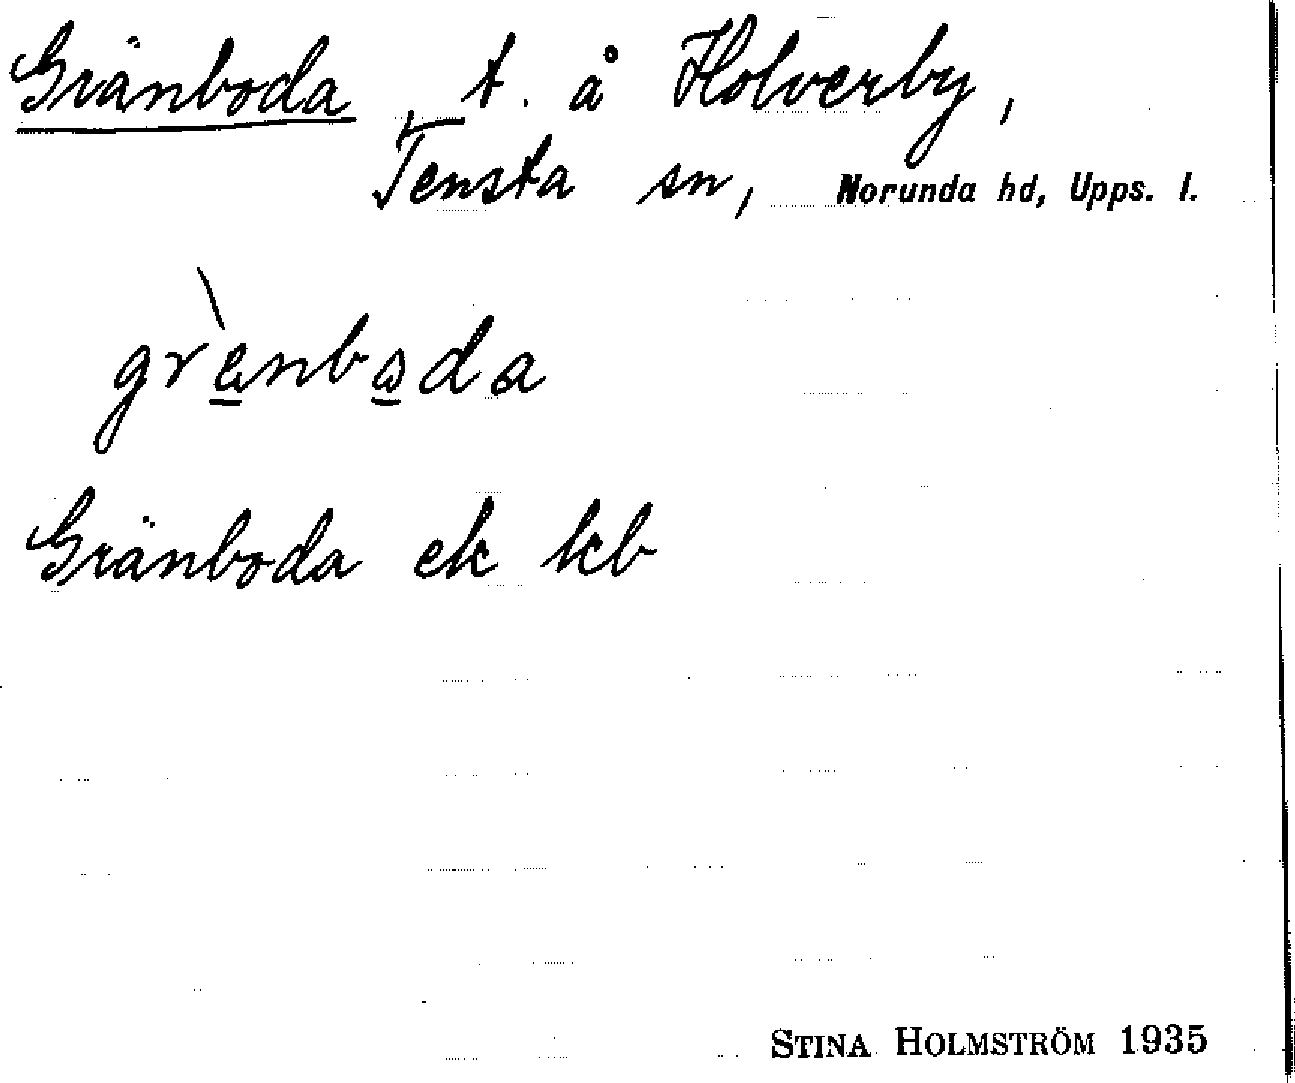 Gränboda t. å Holverby,
Tensta sn, Norunda hd, Upps. l.
gränboda
Gränboda ek kb
STINA HOLMSTRÖM 1935